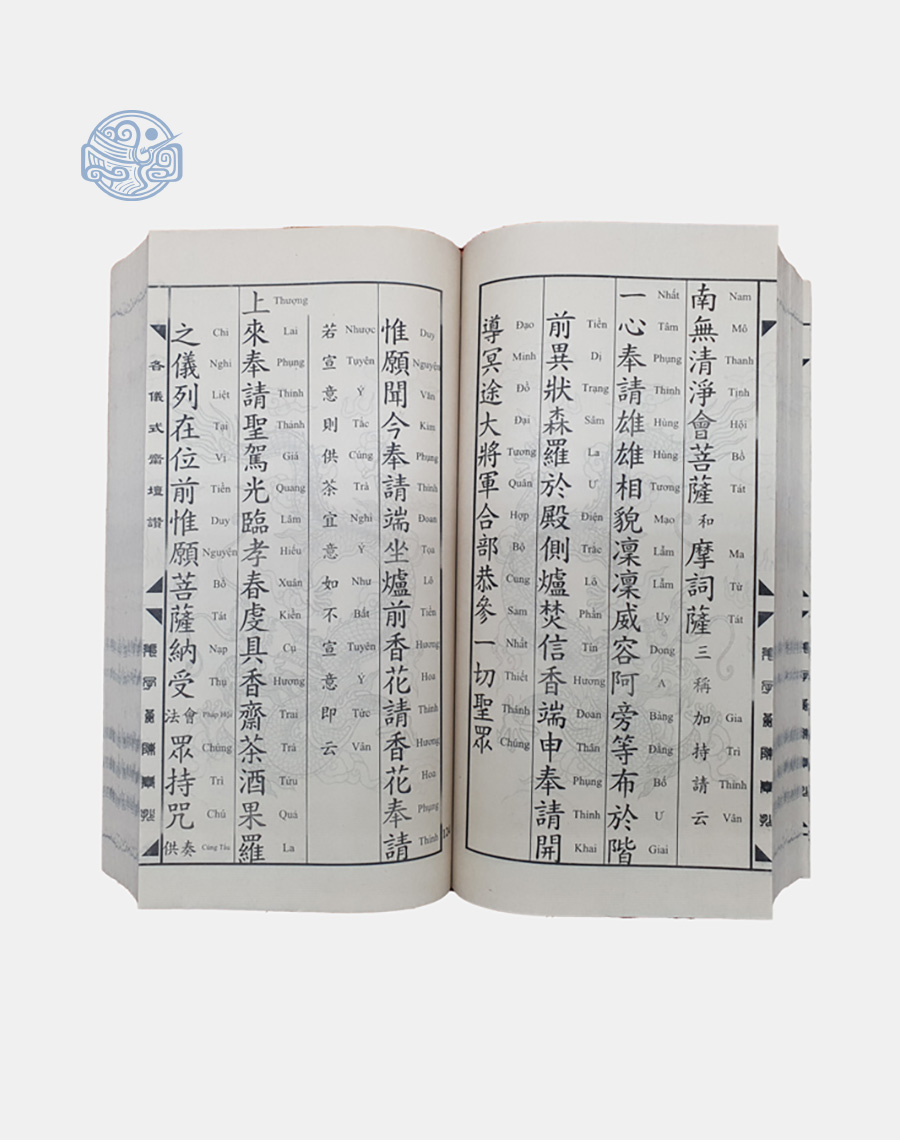 南無清淨會菩薩和摩訶薩三稱加持請云
Nam Mô Thanh Tịnh Hội Bồ Tát Ma Từ Tát Gia Trì Thỉnh Vân
一心奉請雄雄相貌凜凜威容阿旁等布於階
Nhất Tâm Phụng Thỉnh Hùng Hùng Tương Mạo Lẫm Lẫm Uy Dong A Bàng Đẳng Bố Ư Giai
前異狀森羅於殿側爐焚信香端申奉請開
Tiền Dị Trạng Sâm La Ư Điện Trắc Lô Phần Tín Hương Đoan Thân Phụng Thỉnh Khai
導冥途大將軍合部恭參一切聖眾
Đạo Minh Đồ Đại Tương Quân Hợp Bộ Cung Sam Nhất Thiết Thánh Chúng
惟願聞今奉請端坐爐前香花請香花奉請
Duy Nguyện Văn Kim Phụng Thỉnh Đoan Tọa Lô Tiền Hương Hoa Thỉnh Hương Hoa Phụng Thỉnh
若宣意則供茶宜意如不宣意即云
Nhược Tuyên Ý Tắc Cúng Trà Nghi Ý Như Bất Tuyên Ý Tức Vân
上來奉請聖駕光臨孝春虔具香齋茶酒果羅
Thượng Lai Phụng Thỉnh Thánh Giá Quang Lâm Hiếu Xuân Kiền Cụ Hương Trai Trà Tửu Quả La
之儀列在位前惟願菩薩納受法會眾持咒供奏
Chi Nghi Liệt Tại Vị Tiền Duy Nguyện Bồ Tát Nạp Thụ Pháp Hội Chúng Trì Chú Cúng Tấu
各儀式齋壇讚